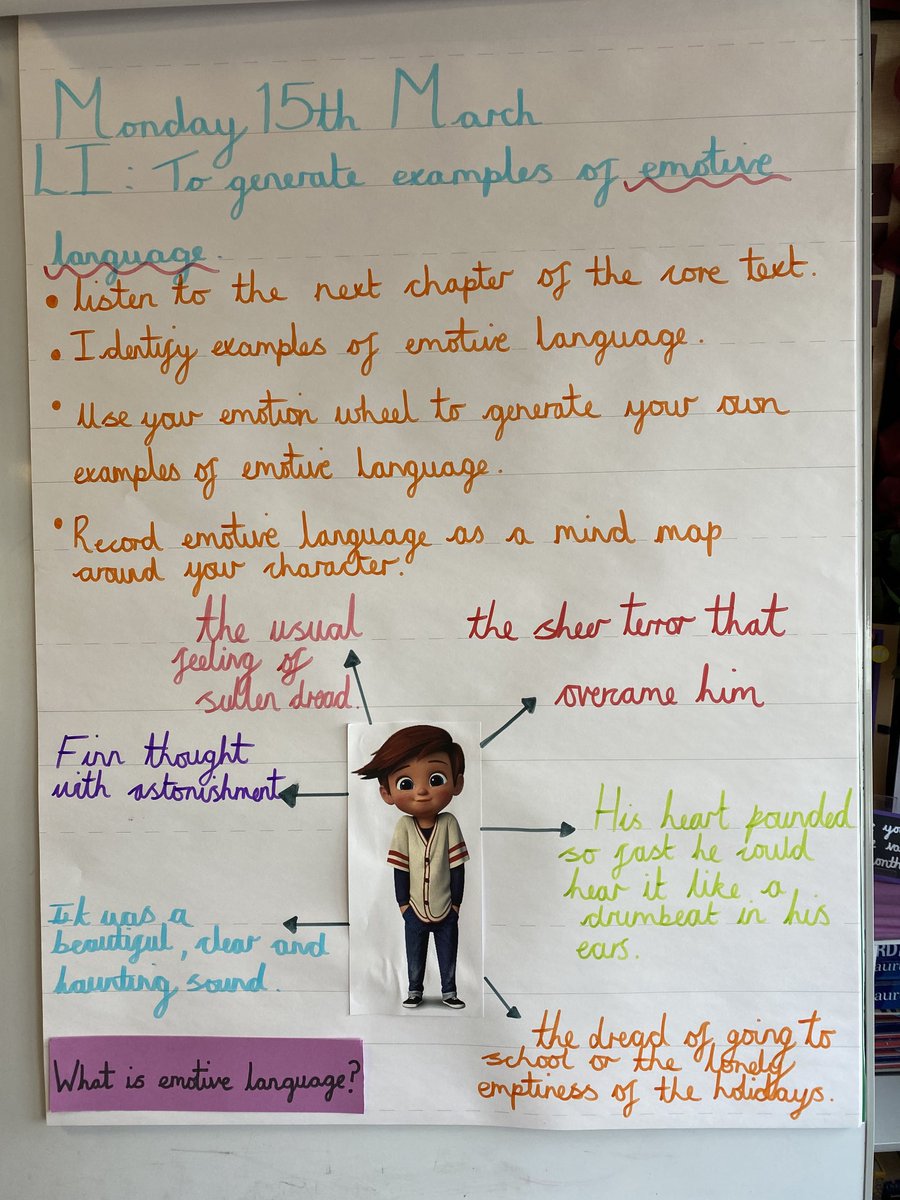 Monday 15th March
LI: To generate examples of emotive
language.
• Listen to the next chapter of the core text.
• Identify examples of emotive language.
• Use your emotion wheel to generate your own
examples of emotive language.
• Record emotive language as a mind map
around your character.
the usual
feeling of
sullen dread.
the sheer terror that
overcame him
Finn thought
with astonishment
His heart pounded
so fast he could
hear it like a
drumbeat in his
ears.
It was a
beautiful, clear and
haunting sound.
the dread of going to
school or the lonely
emptiness of the holidays.
What is emotive language?